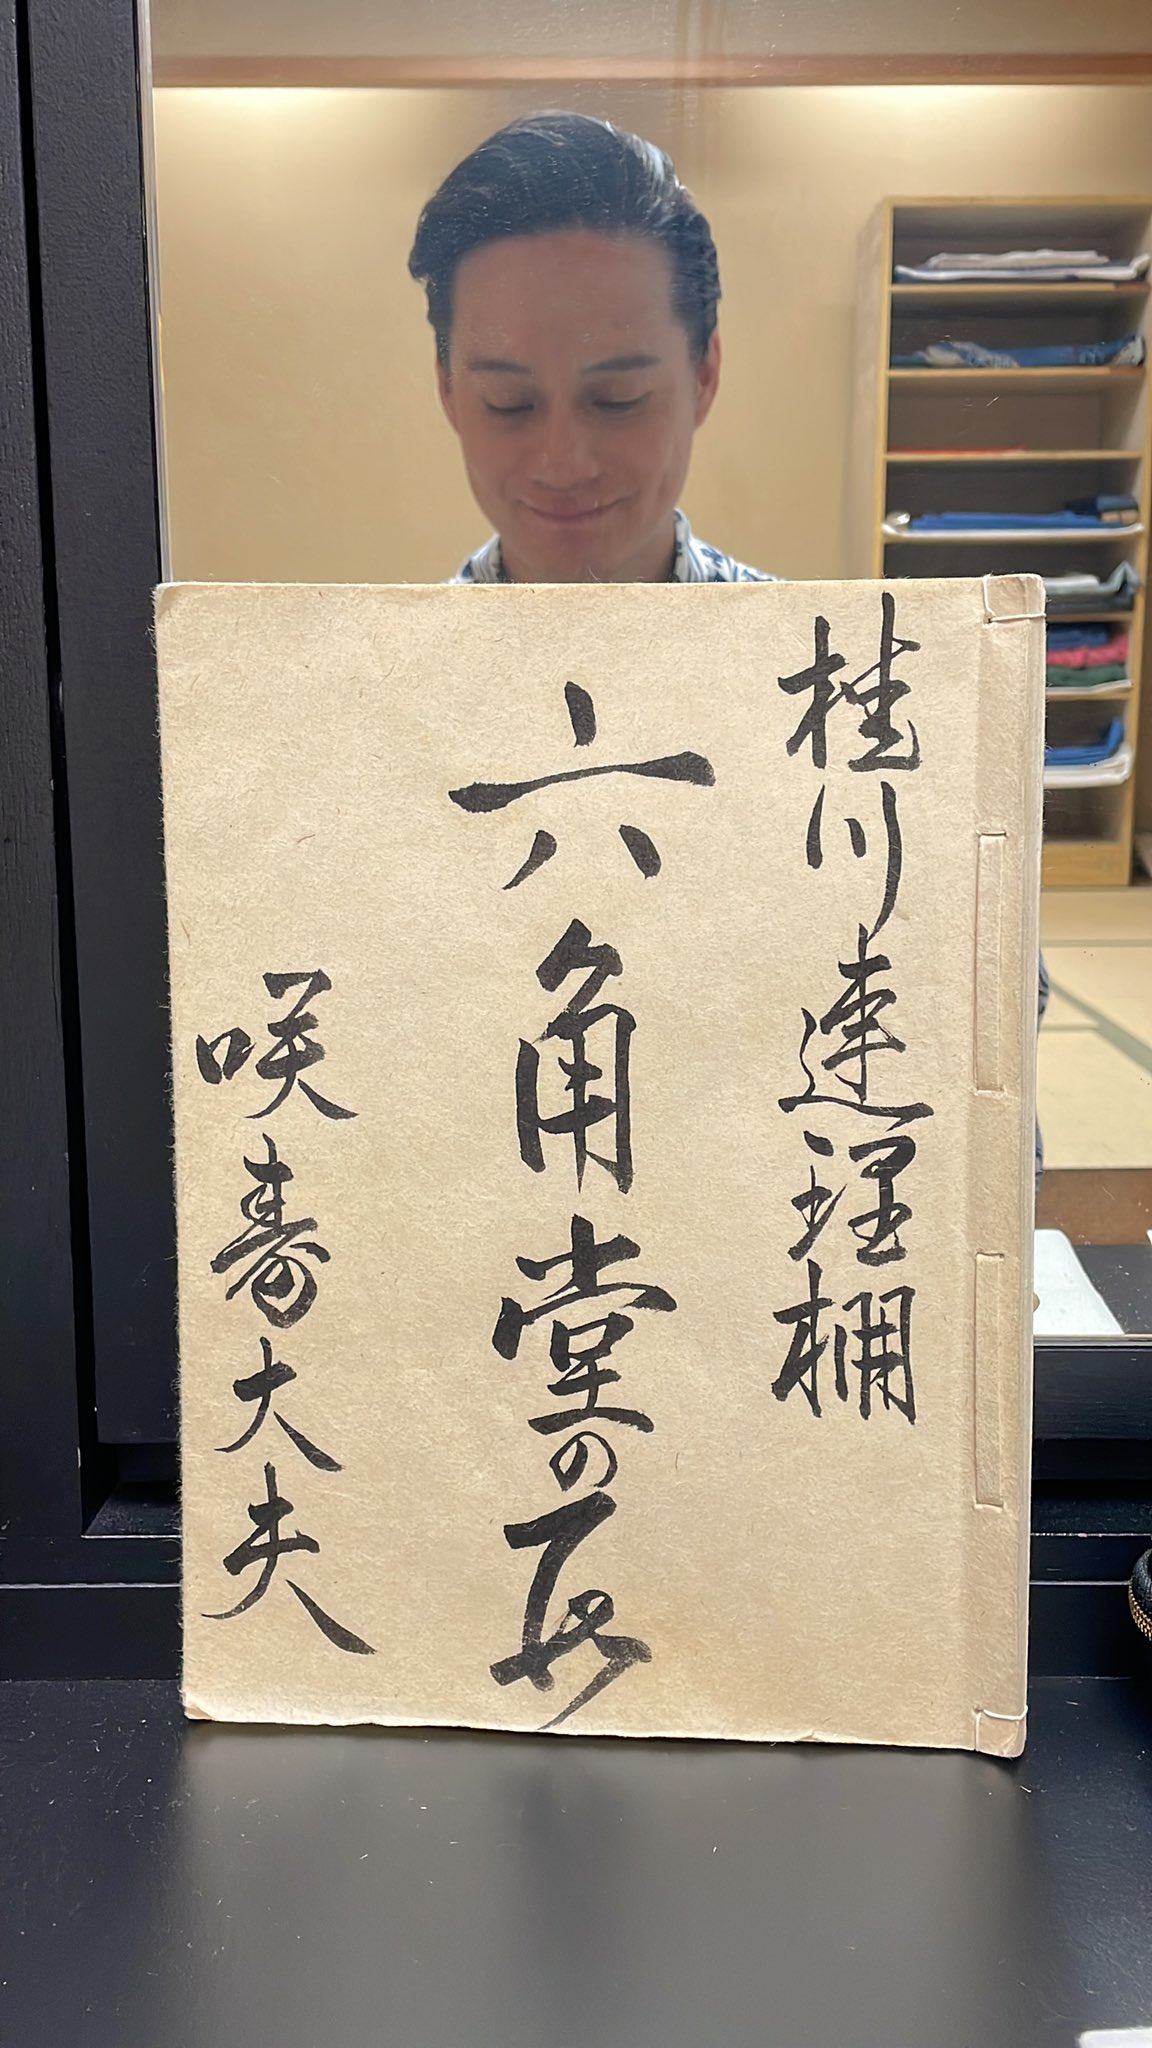 桂川連理柵
六角堂の段
咲寿大夫